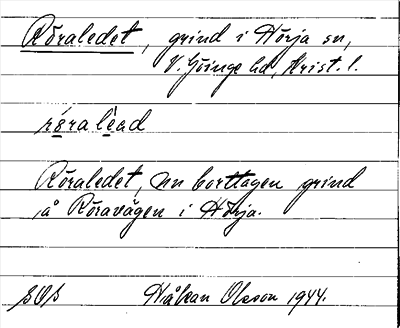 Röraledet, grind i Hörja sn,
V. Göinge hd, Krist. l.
röralead
Röraledet, nu borttagen grind
å Röravägen i Hörja.
SOS Håkan Olsson 1944.